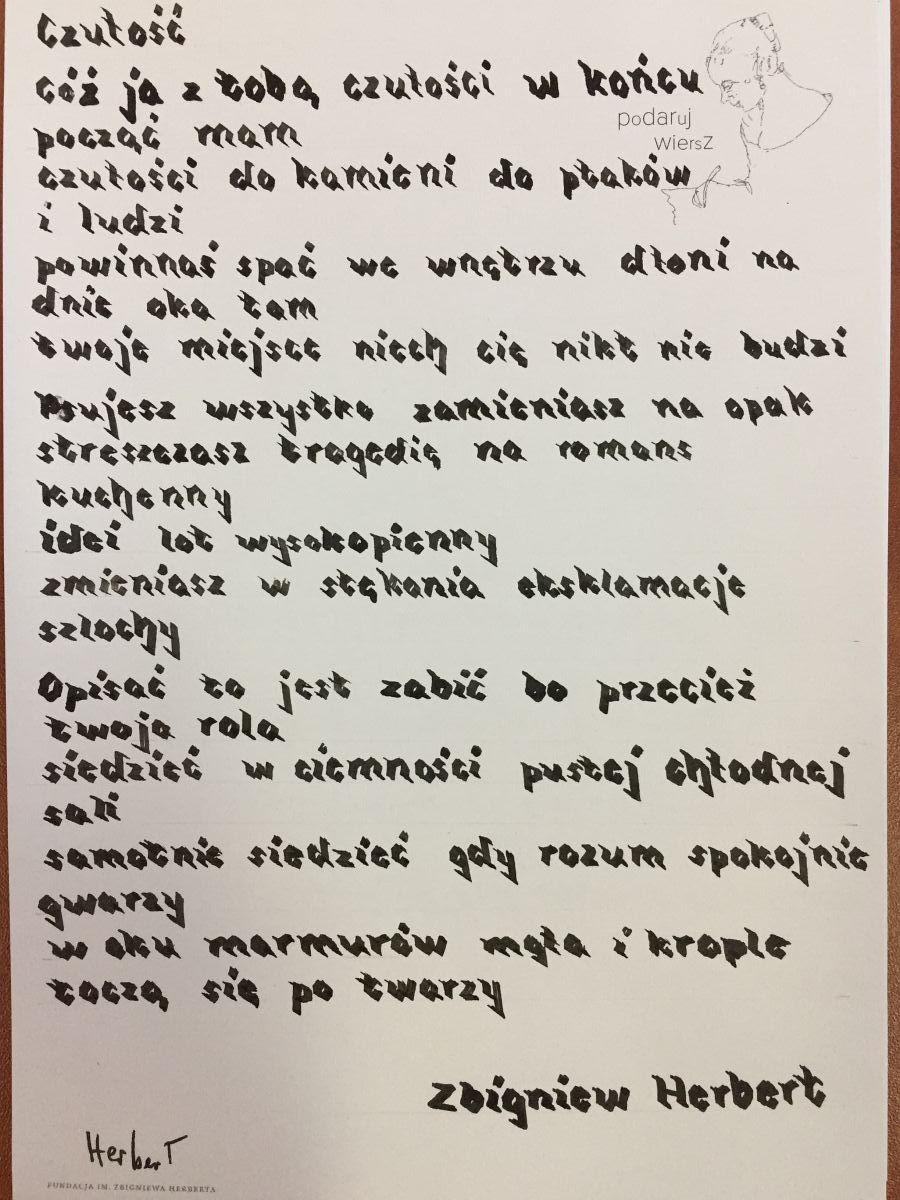 Czułość
cóż ja z tobą czułości w końcu
począć mam
czułości do kamieni do ptaków
i ludzi
powinnaś spać we wnętrzu dłoni na
dnie oka tam
twoje miejsce niech cię nikt nie budzi
Psujesz wszystko zamieniasz na opak
streszczasz tragedię na romans
kuchenny
idei lot wysokopienny
zmieniasz w stękania eksklamacje
szlochy
Opisać to jest zabić bo przecież
twoja rola
siedzieć w ciemności pustej chłodnej
sali
samotnie siedzieć gdy rozum spokojnie
gwarzy
w oku marmurów mgła i krople
toczą się po twarzy
Zbigniew Herbert
podaruj
wiersZ
HerberT
FUNDACJA IM. ZBIGNIEWA HERBERTA